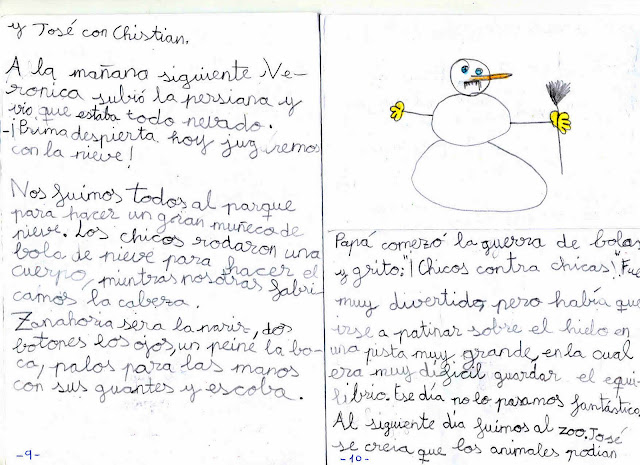 y José con Chistian.
A la mañana siguiente Ve-
ronica subió la persiana y
vio que estaba todo nevado.
-¡Prima despierta hoy jugaremos
con la nieve!
Nos fuimos todos al parque
para hacer un gran muñeco de
nieve. Los chicos rodaron una
bola de nieve para hacer el
cuerpo, mintras nosotras fabri-
camos la cabeza.
Zanahoria sera la nariz, dos
botones los ojos, un peine la bo-
ca, palos para las manos
con sus guantes y escoba.
-9-
Papá comezó la guerra de bolas
y grito: "¡Chicos contra chicas!" Fue
muy divertido, pero había que
irse a patinar sobre el hielo en
una pista muy grande, en la cual
era muy dificil guardar el equi-
libric. Ese día no lo pasamos fantástica
Al siguiente día fuimos al zoo. José
se creia que los animales podian
-10-